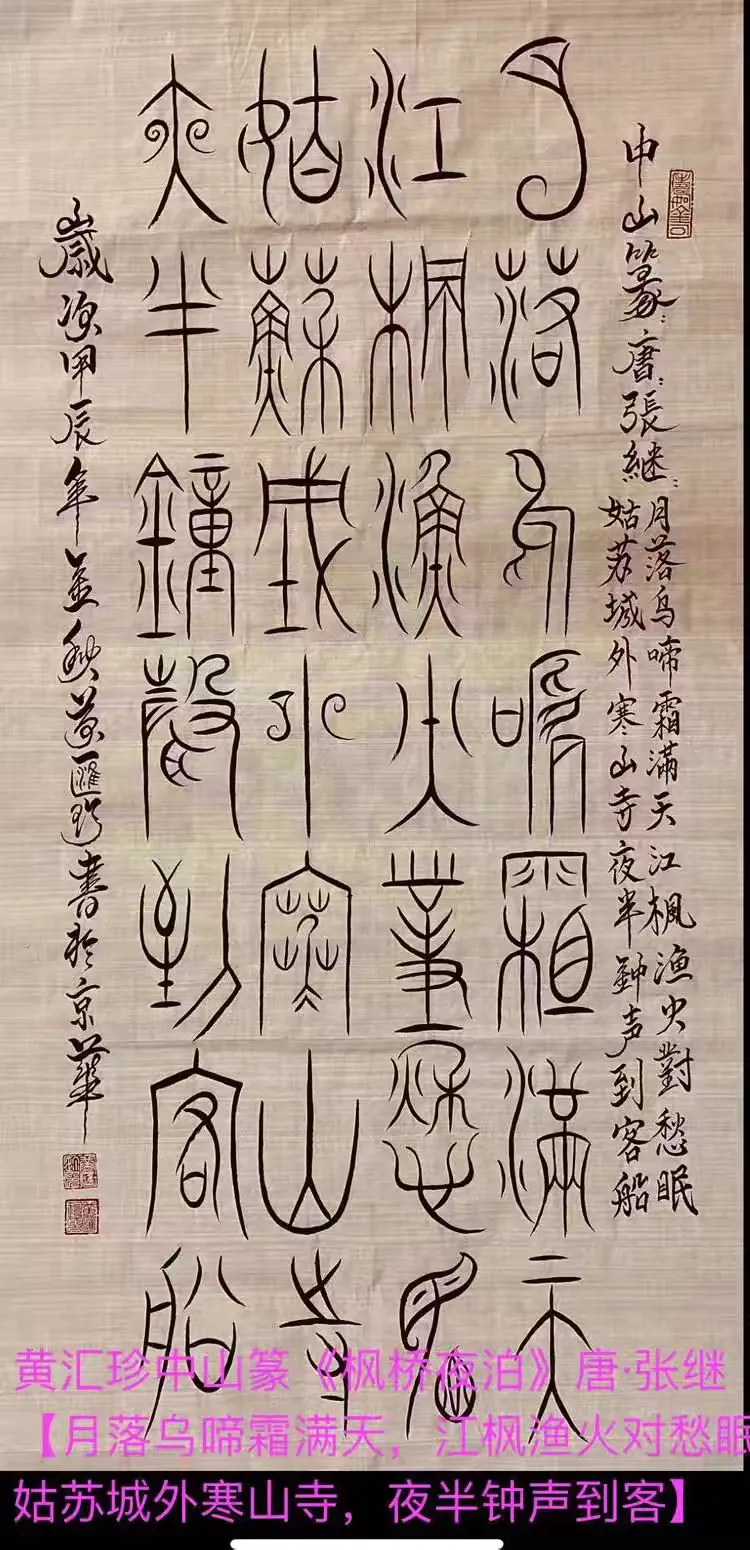 中山篆：唐：張継：
月落烏啼霜滿天江楓渔火對愁眠
姑苏城外寒山寺夜半鈡声到客船
月落烏啼霜滿天
江楓漁火對愁眠
姑蘇城外寒山寺
夜半鐘聲到客船
歲次甲辰年金秋黄匯珍書於京華
黄汇珍中山篆《枫桥夜泊》唐·张继
【月落乌啼霜满天，江枫渔火对愁眠
姑苏城外寒山寺，夜半钟声到客】